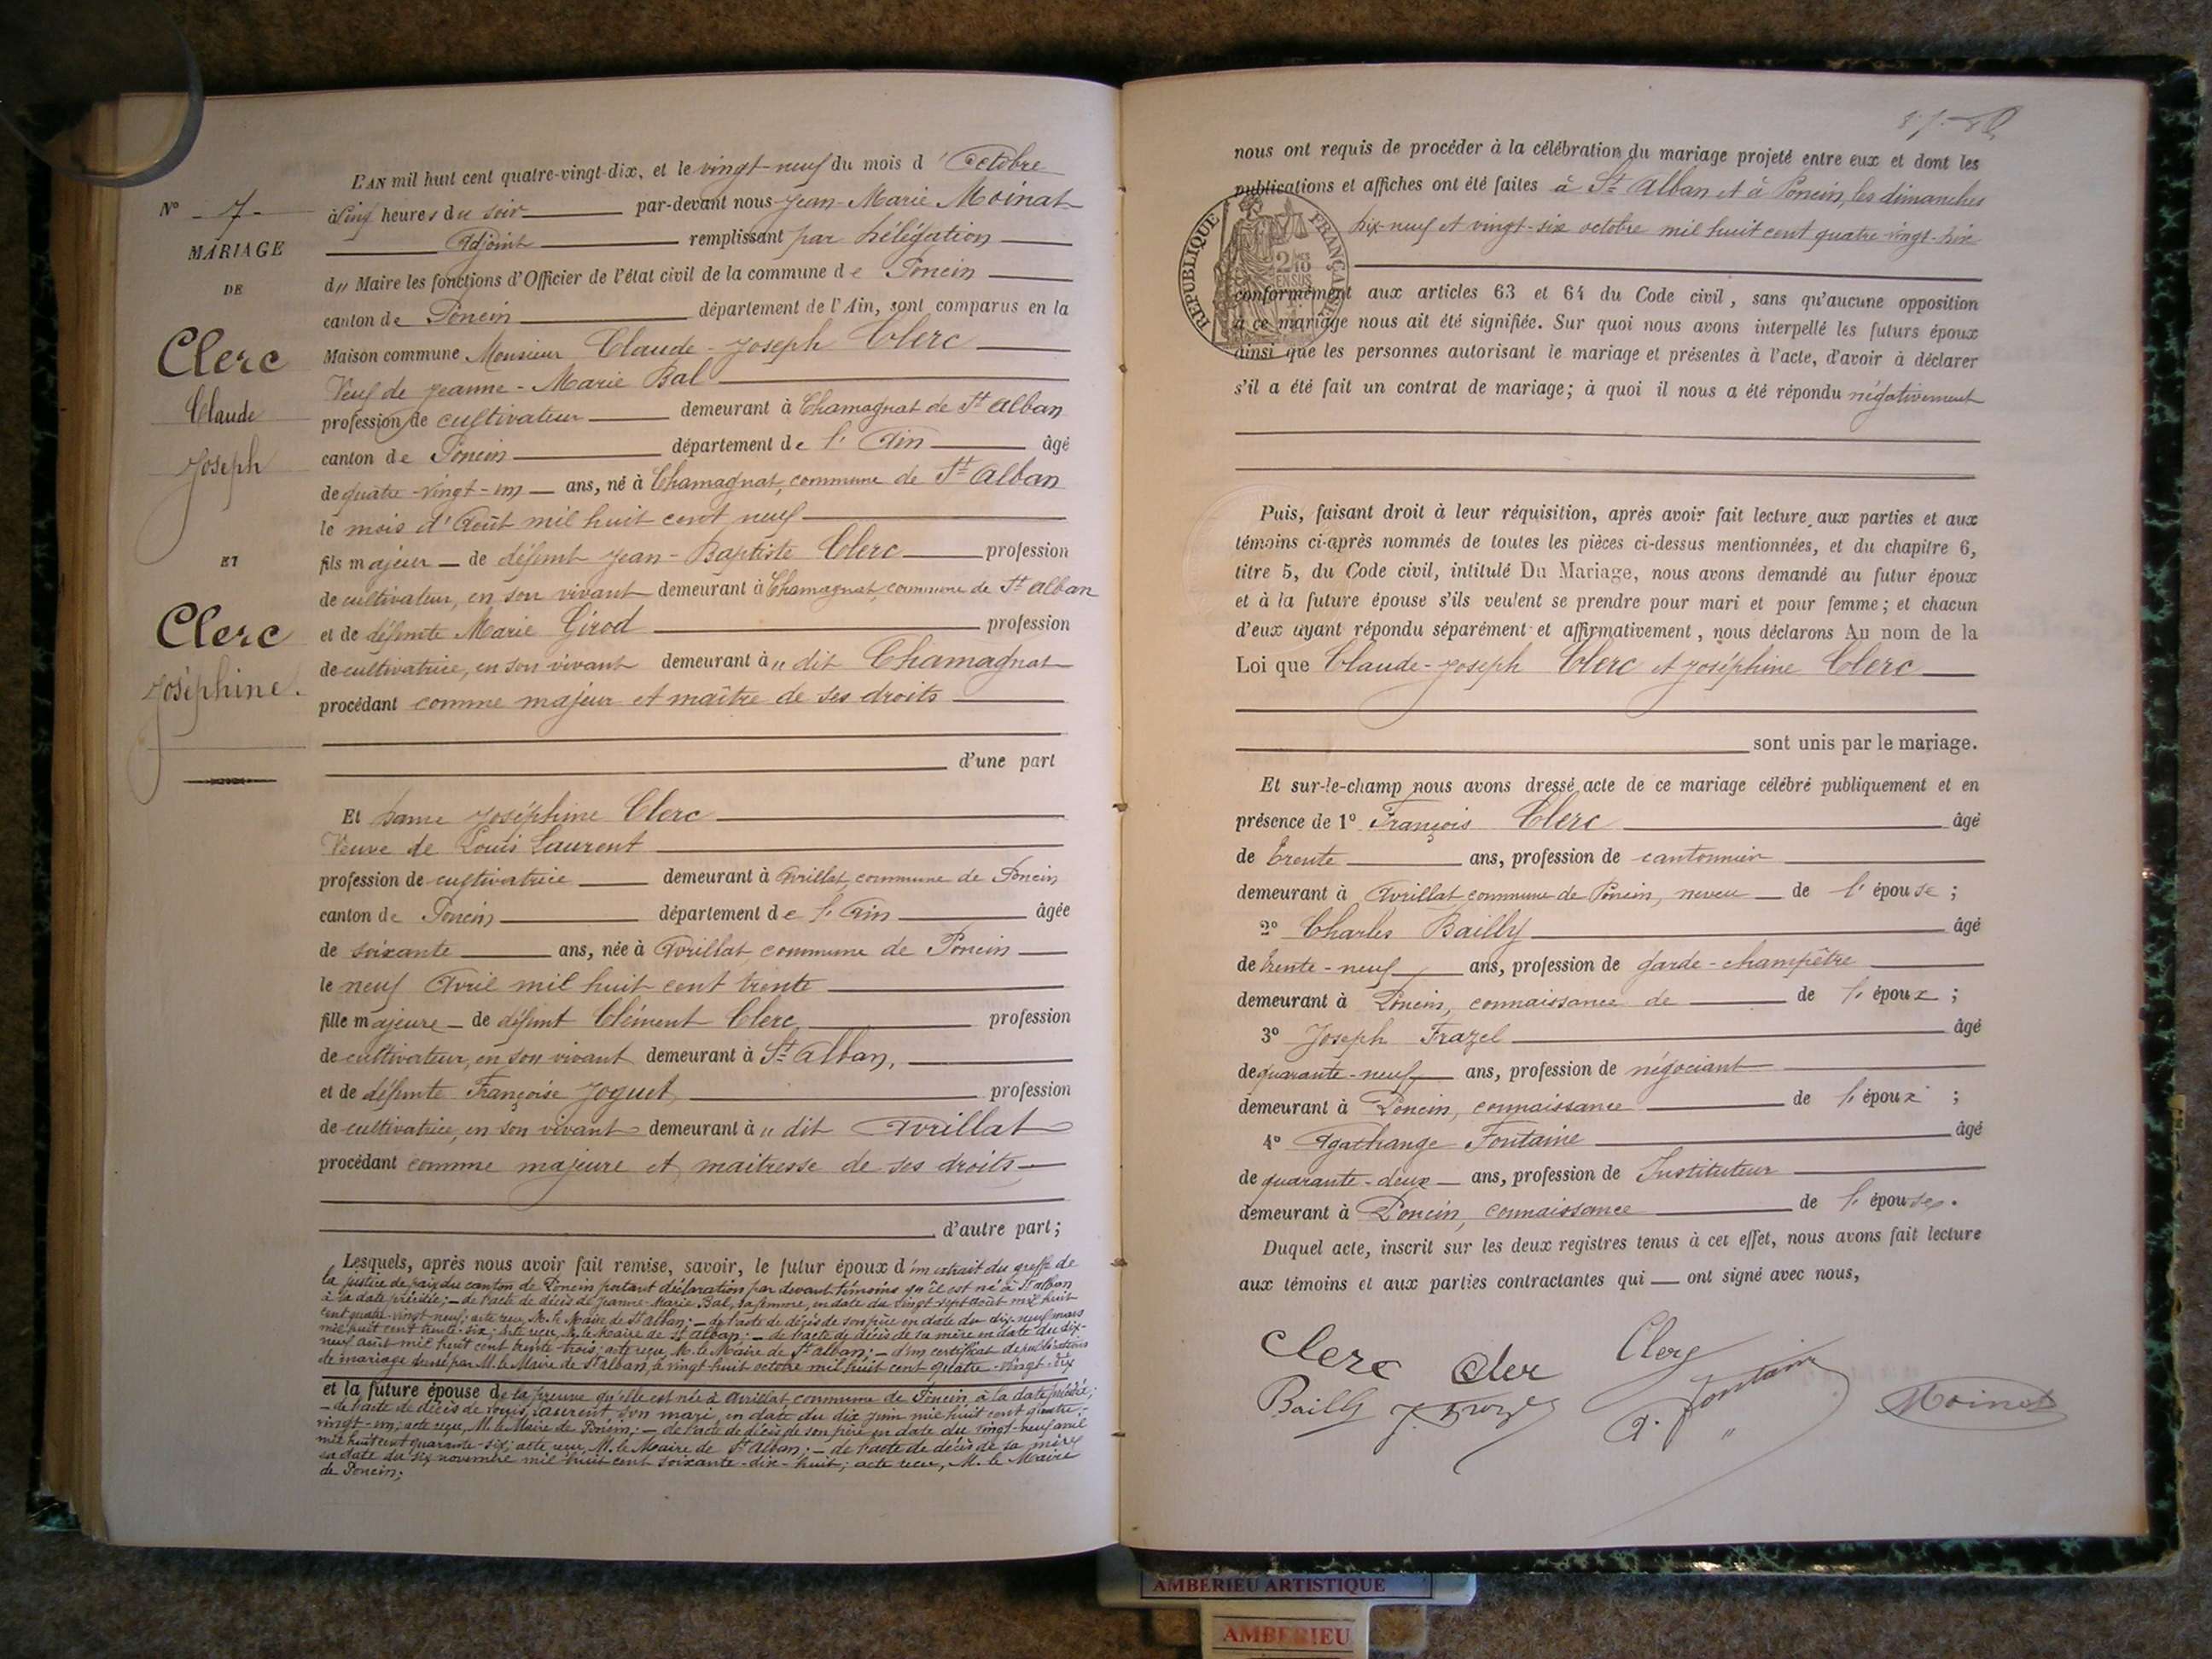 N° - 7 -
MARIAGE
DE
Clerc
Claude
Joseph
ET
Clerc
Joséphine.
L'AN mil huit cent quatre-vingt-dix, et le vingt-neuf du mois d'Octobre
à cinq heures du soir par-devant nous Jean-Marie Moinat
Adjoint remplissant par délégation
d,, Maire les fonctions d'Officier de l'état civil de la commune de Poncin
canton de Poncin département de l'Ain, sont comparus en la
Maison commune Monsieur Claude-Joseph Clerc
Veuf de Jeanne-Marie Bal
profession de cultivateur demeurant à Chamagnat de St Alban
canton de Poncin département de l'Ain âgé
de quatre-vingt-un ans, né à Chamagnat, commune de St Alban
le mois d'Août mil huit cent neuf
fils majeur de défunt Jean-Baptiste Clerc profession
de cultivateur, en son vivant demeurant à Chamagnat, commune de St Alban
et de défunte Marie Girod profession
de cultivatrice, en son vivant demeurant à ,, dit Chamagnat
procédant comme majeur et maître de ses droits
d'une part
Et Dame Joséphine Clerc
Veuve de Louis Laurent
profession de cultivatrice demeurant à Avrillat, commune de Poncin
canton de Poncin département de l'Ain âgée
de soixante ans, née à Avrillat, commune de Poncin
le neuf Avril mil huit cent trente
fille majeure de défunt Clément Clerc, profession
de cultivateur, en son vivant demeurant à St Alban,
et de défunte Françoise Joguet, profession
de cultivatrice, en son vivant demeurant à ,, dit Avrillat
procédant comme majeure et maitresse de ses droits
d'autre part;
Lesquels, après nous avoir fait remise, savoir, le futur époux d'un extrait du greffe de
la justice de paix du canton de Poncin portant déclaration par devant témoins qu'il est né à St Alban
à la date précitée; - de l'acte de décès de Jeanne-Marie Bal, sa femme, en date du vingt-sept août mil huit
cent quatre-vingt-neuf; acte reçu, M. le Maire de St Alban; - de l'acte de décès de son père en date du dix-neuf mars
mil huit cent trente-six; acte reçu, M. le Maire de St Alban; - de l'acte de décès de sa mère en date du dix-
neuf août mil huit cent trente-trois; acte reçu, M. le Maire de St Alban; - d'un certificat de publications
de mariage donné par M. le Maire de St Alban, le vingt-huit octobre mil huit cent quatre-vingt-dix
et la future épouse de la preuve qu'elle est née à Avrillat commune de Poncin à la date précitée;
- de l'acte de décès de Louis Laurent son mari, en date du dix juin mil huit cent quatre-
vingt-un; acte reçu, M. le Maire de Poncin; - de l'acte de décès de son père en date du vingt-neuf avril
mil huit cent quarante-six; acte reçu, M. le Maire de St Alban; - de l'acte de décès de sa mère
en date du six novembre mil huit cent soixante-dix-huit; acte reçu, M. le Maire
de Poncin;
nous ont requis de procéder à la célébration du mariage projeté entre eux et dont les
publications et affiches ont été faites à St Alban et à Poncin, les dimanches
dix-neuf et vingt-six octobre mil huit cent quatre-vingt-dix
RÉPUBLIQUE FRANÇAISE
conformément aux articles 63 et 64 du Code civil, sans qu'aucune opposition
à ce mariage nous ait été signifiée. Sur quoi nous avons interpellé les futurs époux
ainsi que les personnes autorisant le mariage et présentes à l'acte, d'avoir à déclarer
s'il a été fait un contrat de mariage; à quoi il nous a été répondu négativement
Puis, faisant droit à leur réquisition, après avoir fait lecture aux parties et aux
témoins ci-après nommés de toutes les pièces ci-dessus mentionnées, et du chapitre 6,
titre 5, du Code civil, intitulé Du Mariage, nous avons demandé au futur époux
et à la future épouse s'ils veulent se prendre pour mari et pour femme; et chacun
d'eux ayant répondu séparément et affirmativement, nous déclarons Au nom de la
Loi que Claude-Joseph Clerc et Joséphine Clerc
sont unis par le mariage.
Et sur-le-champ nous avons dressé acte de ce mariage célébré publiquement et en
présence de 1° François Clerc âgé
de trente ans, profession de cantonnier
demeurant à Avrillat, commune de Poncin, neveu de l'épouse;
2° Charles Bailly âgé
de trente-neuf ans, profession de garde-champêtre
demeurant à Poncin, connaissance de de l'époux;
3° Joseph Frazel âgé
de quarante-neuf ans, profession de négociant
demeurant à Poncin, connaissance de l'époux;
4° Agathange Fontaine âgé
de quarante-deux ans, profession de Instituteur
demeurant à Poncin, connaissance de l'épouse.
Duquel acte, inscrit sur les deux registres tenus à cet effet, nous avons fait lecture
aux témoins et aux parties contractantes qui ont signé avec nous,
Clerc Cler Clerc
Bailly A. Fontaine Moinat
AMBERIEU ARTISTIQUE
AMBERIEU